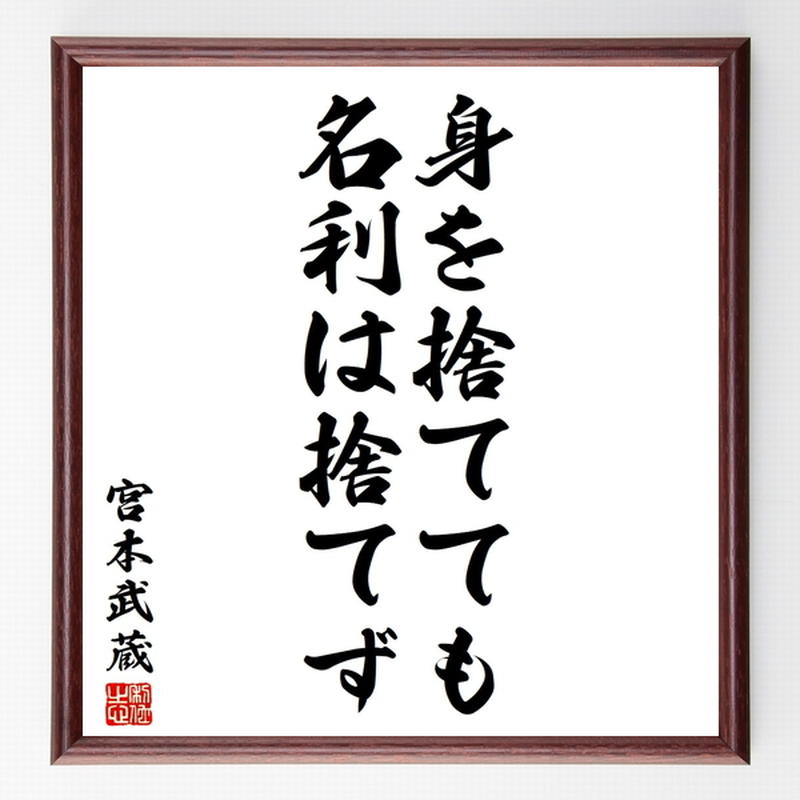 身を捨てても
名利は捨てず
宮本武蔵